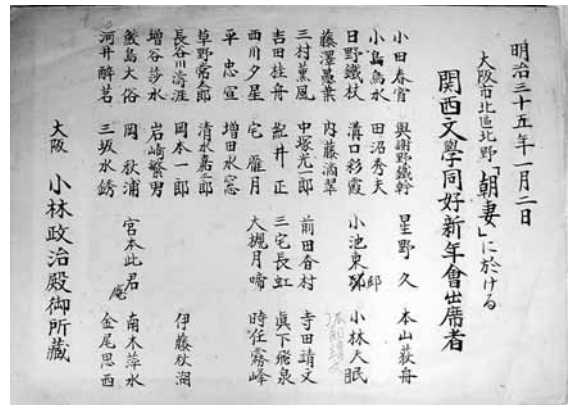 明治三十五年一月二日
大阪市北區北野「朝妻」に於ける
関西文學同好新年會出席者
小田春宵 與謝野鐵幹 星野久 本山荻舟
小島烏水 田沼秀夫
日野鐵杖 溝口彩霞 小池東邨 小林天眠
藤澤 内藤滴翠
三村薫風 中塚光一郎 前田香村 寺田靖文
吉田桂舟 井正 三宅長虹 眞下飛泉
西川夕星 宅雁月 大槻月啼 時任霧峰
平忠宣 増田水窓
草野常太郎 清水嘉三郎
長谷川濤涯 岡本一郎 伊藤秋湖
増谷莎水 岩崎繁男
鮫島大俗 岡秋浦 宮本此君庵 南木萍水
河井醉茗 三坂水銹 金尾思西
大阪 小林政治殿御所藏